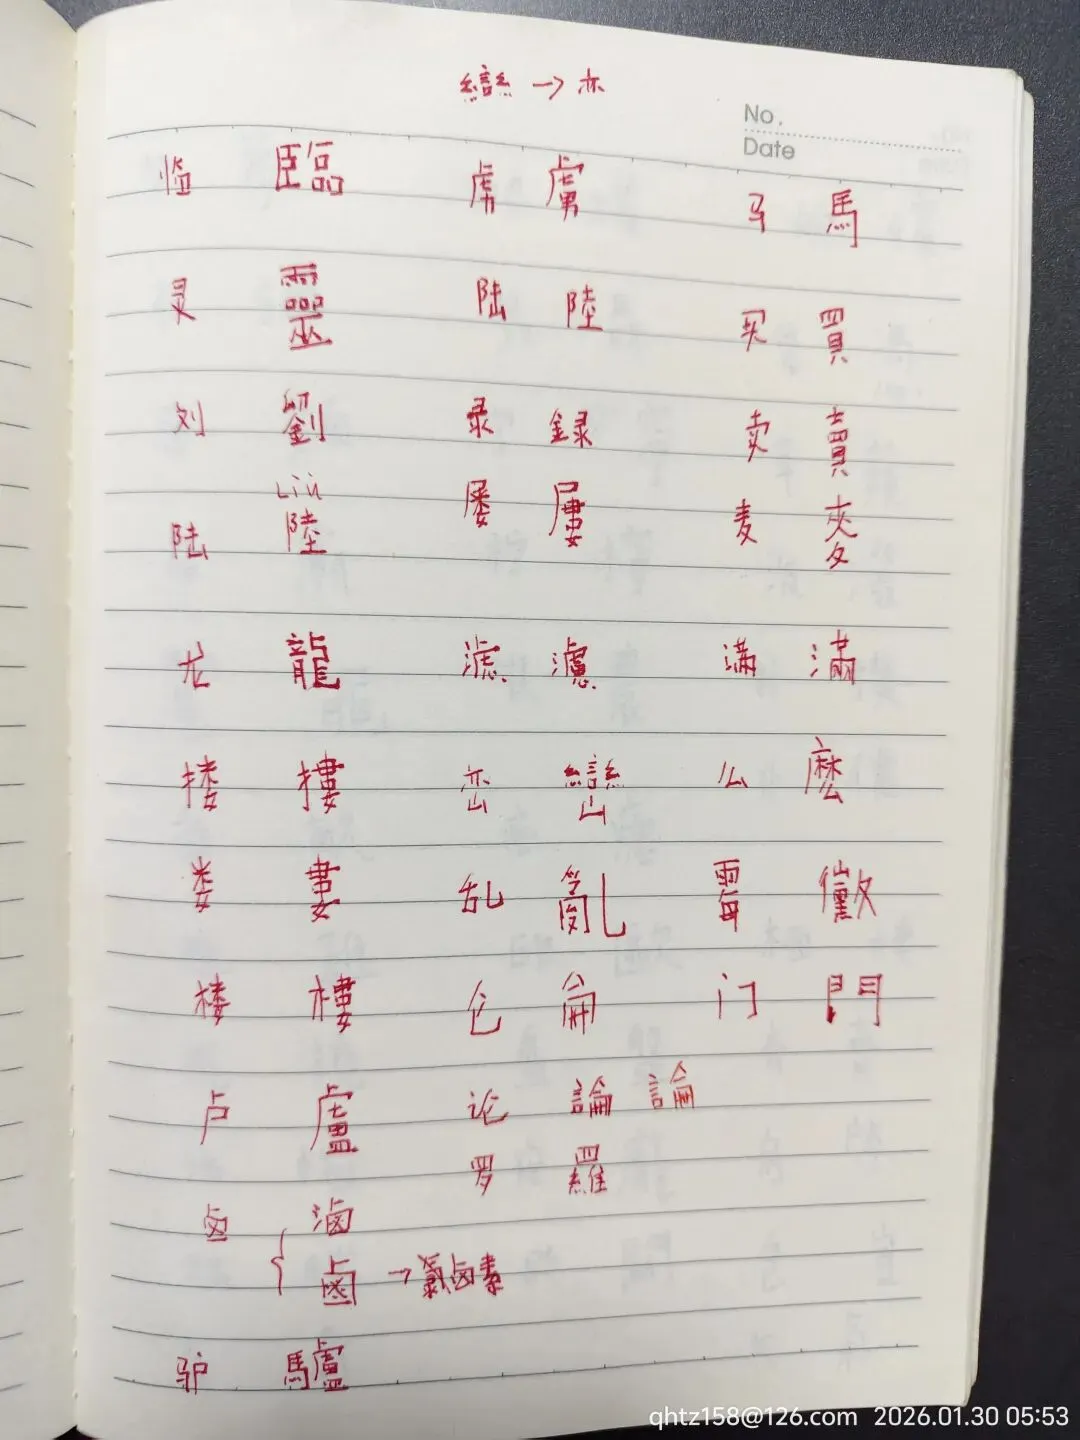 䜌→亦
No.
Date
临 臨 虏 虜 马 馬
灵 靈 陆 陸 买 買
刘 劉 录 録 卖 賣
Liù
陆 陸 屡 屢 麦 麥
龙 龍 滤 濾 满 滿
搂 摟 峦 巒 么 麼
娄 婁 乱 亂 霉 黴
楼 樓 仑 侖 门 門
卢 盧 论 論 論
罗 羅
卤 { 滷
鹵 →氯卤素
驴 驢
qhtz158@126.com 2026.01.30 05:53